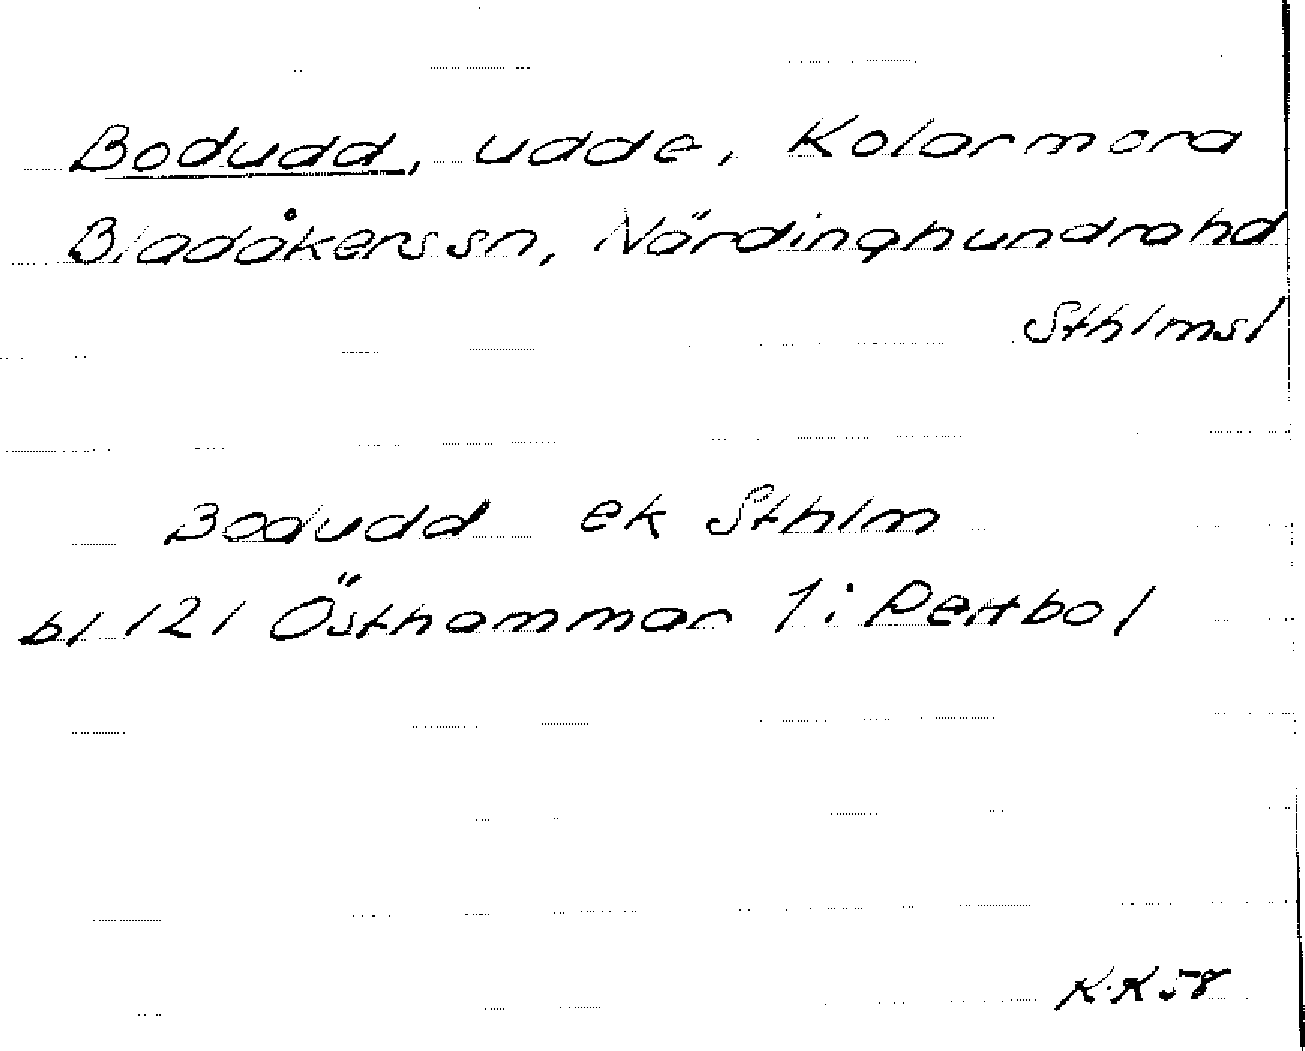 Bodudd, udde, Kolarmora
Bladåkerssn, Närdinghundrahd
Sthlmsl
Bodudd ek Sthlm
bl 121 Östhammar 1: Pertbol
K.K 58